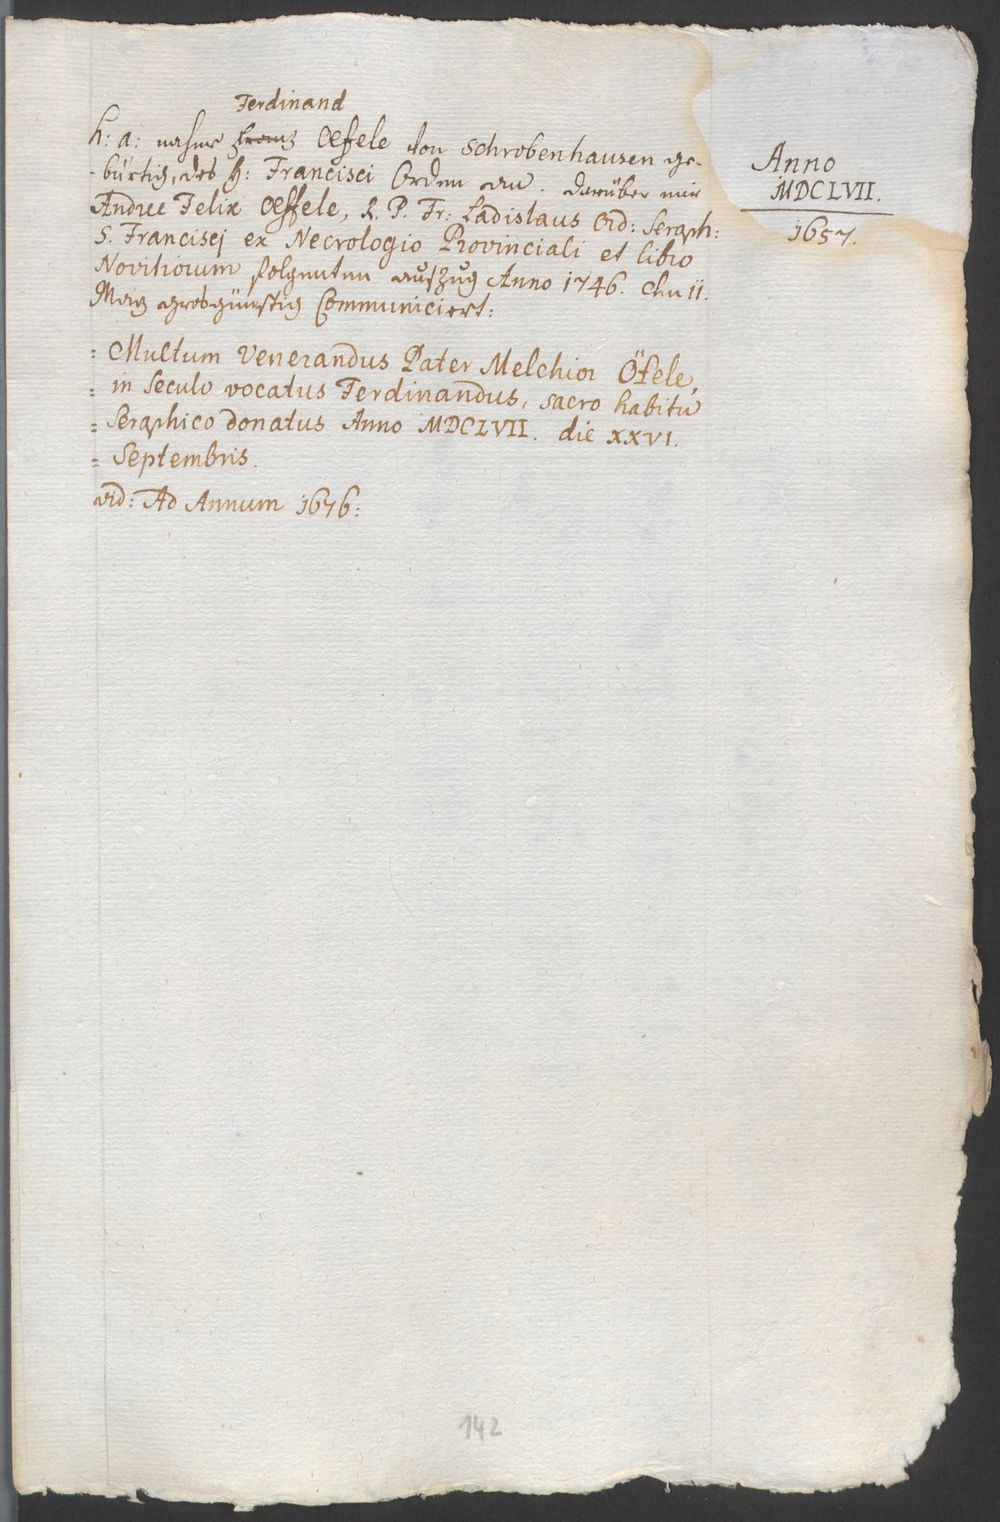 Anno
MDCLVII.
1657.
Ferdinand
h: a: nahme Franz Oefele von Schrobenhausen ge-
-bürtig, des H: Francisci Orden an. darüber mir
Andree Felix Oeffele, R. P. Fr: Ladislaus Ord: Seraph:
S. Francisci ex Necrologio Provinciali et libro
Novitiorum folgenten auszug Anno 1746. den 11.
May grosgünstig Communiciert:
= Multum Venerandus Pater Melchior Öfele,
= in Seculo vocatus Ferdinandus, sacro habitu
= Seraphico donatus Anno MDCLVII. die XXVI.
= Septembris.
vid: Ad Annum 1676:
142